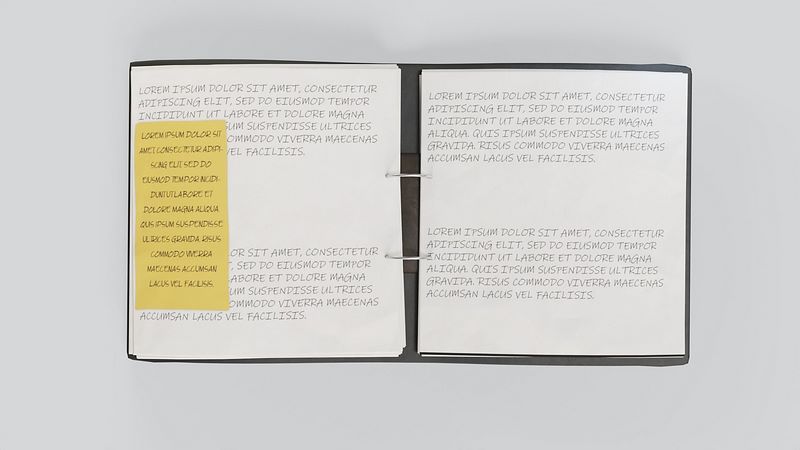 LOREM IPSUM DOLOR SIT AMET, CONSECTETUR
ADIPISCING ELIT, SED DO EIUSMOD TEMPOR
INCIDIDUNT UT LABORE ET DOLORE MAGNA
SUM SUSPENDISSE ULTRICES
COMMODO VIVERRA MAECENAS
VEL FACILISIS.
LOREM IPSUM DOLOR SIT
AMET, CONSECTETUR ADIPI-
SCING ELIT, SED DO
EIUSMOD TEMPOR INCIDI-
DUNT UT LABORE ET
DOLORE MAGNA ALIQUA.
QUIS IPSUM SUSPENDISSE
ULTRICES GRAVIDA. RISUS
COMMODO VIVERRA
MAECENAS ACCUMSAN
LACUS VEL FACILISIS.
LOR SIT AMET, CONSECTETUR
T, SED DO EIUSMOD TEMPOR
LABORE ET DOLORE MAGNA
SUM SUSPENDISSE ULTRICES
COMMODO VIVERRA MAECENAS
ACCUMSAN LACUS VEL FACILISIS.
LOREM IPSUM DOLOR SIT AMET, CONSECTETUR
ADIPISCING ELIT, SED DO EIUSMOD TEMPOR
INCIDIDUNT UT LABORE ET DOLORE MAGNA
ALIQUA. QUIS IPSUM SUSPENDISSE ULTRICES
GRAVIDA. RISUS COMMODO VIVERRA MAECENAS
ACCUMSAN LACUS VEL FACILISIS.
LOREM IPSUM DOLOR SIT AMET, CONSECTETUR
ADIPISCING ELIT, SED DO EIUSMOD TEMPOR
INCIDIDUNT UT LABORE ET DOLORE MAGNA
ALIQUA. QUIS IPSUM SUSPENDISSE ULTRICES
GRAVIDA. RISUS COMMODO VIVERRA MAECENAS
ACCUMSAN LACUS VEL FACILISIS.